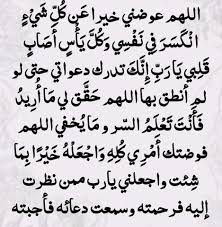 اللهم عوضني خيرا عَن كُلِّ شَيْءٍ
انْكَسَرَ فِي نَفْسِي وَكُلَّ يَأْسٍ أَصَابَ
قَلبِي يَا رَبِّ إِنَّكَ تدرك دعواتي حتى لو
لم أنطق بها اللهم حَقَّق لي مَا أُرِيدُ
فَأَنْتَ تَعْلَمُ السِّر و مَا يُخفي اللهم
فوضتك أَمْرِي كُلِهِ وَاجْعَلهُ خَيْرًا بِمَا
شِئت واجعلني يارب ممن نظرت
إليه فرحمته وسمعت دعائه فأجبته